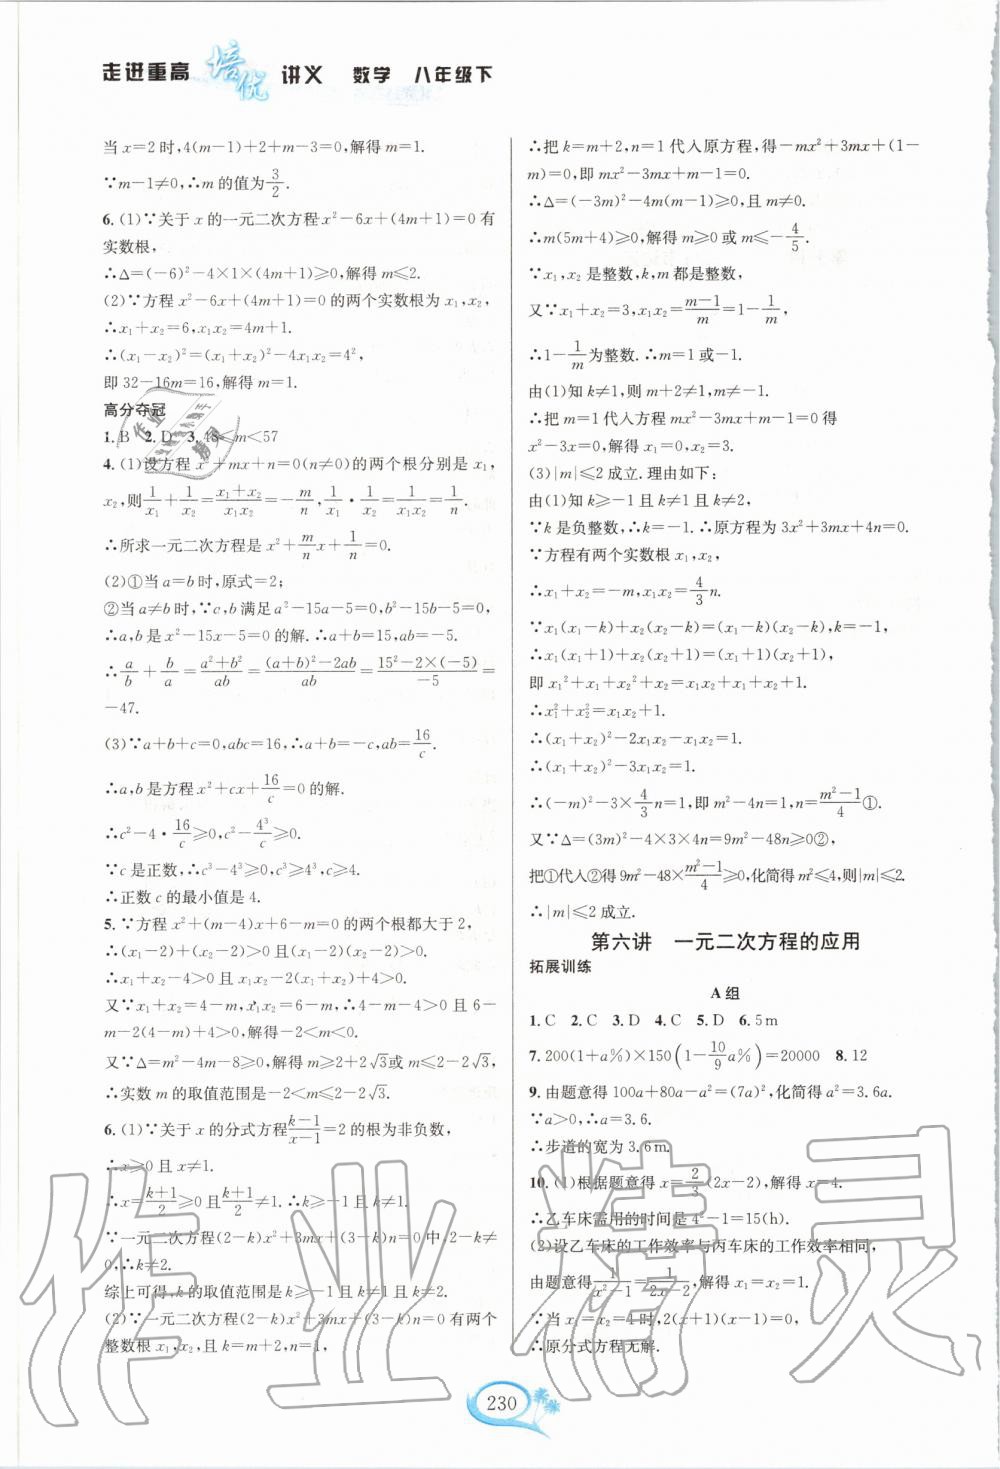 走进重高 培优 讲义 数学 八年级下
当x=2时,4(m-1)+2+m-3=0,解得m=1.
∵m-1≠0,∴m的值为3/2.
6.(1)∵关于x的一元二次方程x²-6x+(4m+1)=0有
实数根,
∴Δ=(-6)²-4×1×(4m+1)≥0,解得m≤2.
(2)∵方程x²-6x+(4m+1)=0的两个实数根为x₁,x₂,
∴x₁+x₂=6,x₁x₂=4m+1.
∴(x₁-x₂)²=(x₁+x₂)²-4x₁x₂=4²,
即32-16m=16,解得m=1.
高分夺冠
1.B 2.D 3.48<m<57
4.(1)设方程x²+mx+n=0(n≠0)的两个根分别是x₁,
x₂,则1/x₁+1/x₂=(x₁+x₂)/(x₁x₂)=-m/n,1/x₁·1/x₂=1/(x₁x₂)=1/n.
∴所求一元二次方程是x²+(m/n)x+1/n=0.
(2)①当a=b时,原式=2;
②当a≠b时,∵c,b满足a²-15a-5=0,b²-15b-5=0,
∴a,b是x²-15x-5=0的解.∴a+b=15,ab=-5.
∴a/b+b/a=(a²+b²)/ab=((a+b)²-2ab)/ab=(15²-2×(-5))/(-5)=
-47.
(3)∵a+b+c=0,abc=16,∴a+b=-c,ab=16/c.
∴a,b是方程x²+cx+16/c=0的解.
∴c²-4·16/c≥0,c²-4³/c≥0.
∵c是正数,∴c³-4³≥0,c³≥4³,c≥4.
∴正数c的最小值是4.
5.∵方程x²+(m-4)x+6-m=0的两个根都大于2,
∴(x₁-2)+(x₂-2)>0且(x₁-2)(x₂-2)>0.
∴x₁+x₂-4>0且x₁x₂-2(x₁+x₂)+4>0.
又∵x₁+x₂=4-m,x₁x₂=6-m,∴4-m-4>0且6-
m-2(4-m)+4>0,解得-2<m<0.
又∵Δ=m²-4m-8≥0,解得m≥2+2√3或m≤2-2√3,
∴实数m的取值范围是-2<m≤2-2√3.
6.(1)∵关于x的分式方程(k-1)/(x-1)=2的根为非负数,
∴x≥0且x≠1.
∴x=(k+1)/2≥0且(k+1)/2≠1.∴k≥-1且k≠1.
∵一元二次方程(2-k)x²+3mx+(3-k)n=0中2-k≠0,
∴k≠2.
综上可得,k的取值范围是k≥-1且k≠1且k≠2.
(2)∵一元二次方程(2-k)x²+3mx+(3-k)n=0有两个
整数根x₁,x₂,且k=m+2,n=1,
∴把k=m+2,n=1代入原方程,得-mx²+3mx+(1-
m)=0,即mx²-3mx+m-1=0.
∴Δ=(-3m)²-4m(m-1)≥0,且m≠0.
∴m(5m+4)≥0,解得m≥0或m≤-4/5.
∵x₁,x₂是整数,k,m都是整数,
又∵x₁+x₂=3,x₁x₂=(m-1)/m=1-1/m,
∴1-1/m为整数.∴m=1或-1.
由(1)知k≠1,则m+2≠1,m≠-1.
∴把m=1代入方程mx²-3mx+m-1=0得
x²-3x=0,解得x₁=0,x₂=3.
(3)|m|≤2成立.理由如下:
由(1)知k≥-1且k≠1且k≠2,
∵k是负整数,∴k=-1.∴原方程为3x²+3mx+4n=0.
∵方程有两个实数根x₁,x₂,
∴x₁+x₂=-m,x₁x₂=4/3n.
∵x₁(x₁-k)+x₂(x₂-k)=(x₁-k)(x₂-k),k=-1,
∴x₁(x₁+1)+x₂(x₂+1)=(x₁+1)(x₂+1).
即x₁²+x₁+x₂²+x₂=x₁x₂+x₁+x₂+1.
∴x₁²+x₂²=x₁x₂+1.
∴(x₁+x₂)²-2x₁x₂=x₁x₂+1.
∴(x₁+x₂)²-3x₁x₂=1.
∴(-m)²-3×4/3n=1,即m²-4n=1,n=(m²-1)/4①.
又∵Δ=(3m)²-4×3×4n=9m²-48n≥0②,
把①代入②得9m²-48×(m²-1)/4≥0,化简得m²≤4,则|m|≤2.
∴|m|≤2成立.
第六讲 一元二次方程的应用
拓展训练
A组
1.C 2.C 3.D 4.C 5.D 6.5m
7.200(1+a%)×150(1-10/9a%)=20000 8.12
9.由题意得100a+80a-a²=(7a)²,化简得a²=3.6a.
∵a>0,∴a=3.6.
∴步道的宽为3.6m.
10.(1)根据题意得x=2/3(2x-2),解得x=4.
∴乙车床需用的时间是4²-1=15(h).
(2)设乙车床的工作效率与丙车床的工作效率相同,
由题意得1/(x²-1)=1/(2x-2),解得x₁=x₂=1.
∵当x₁=x₂=4时,2(x-1)(x-1)=0,
∴原分式方程无解.
230
作业精灵